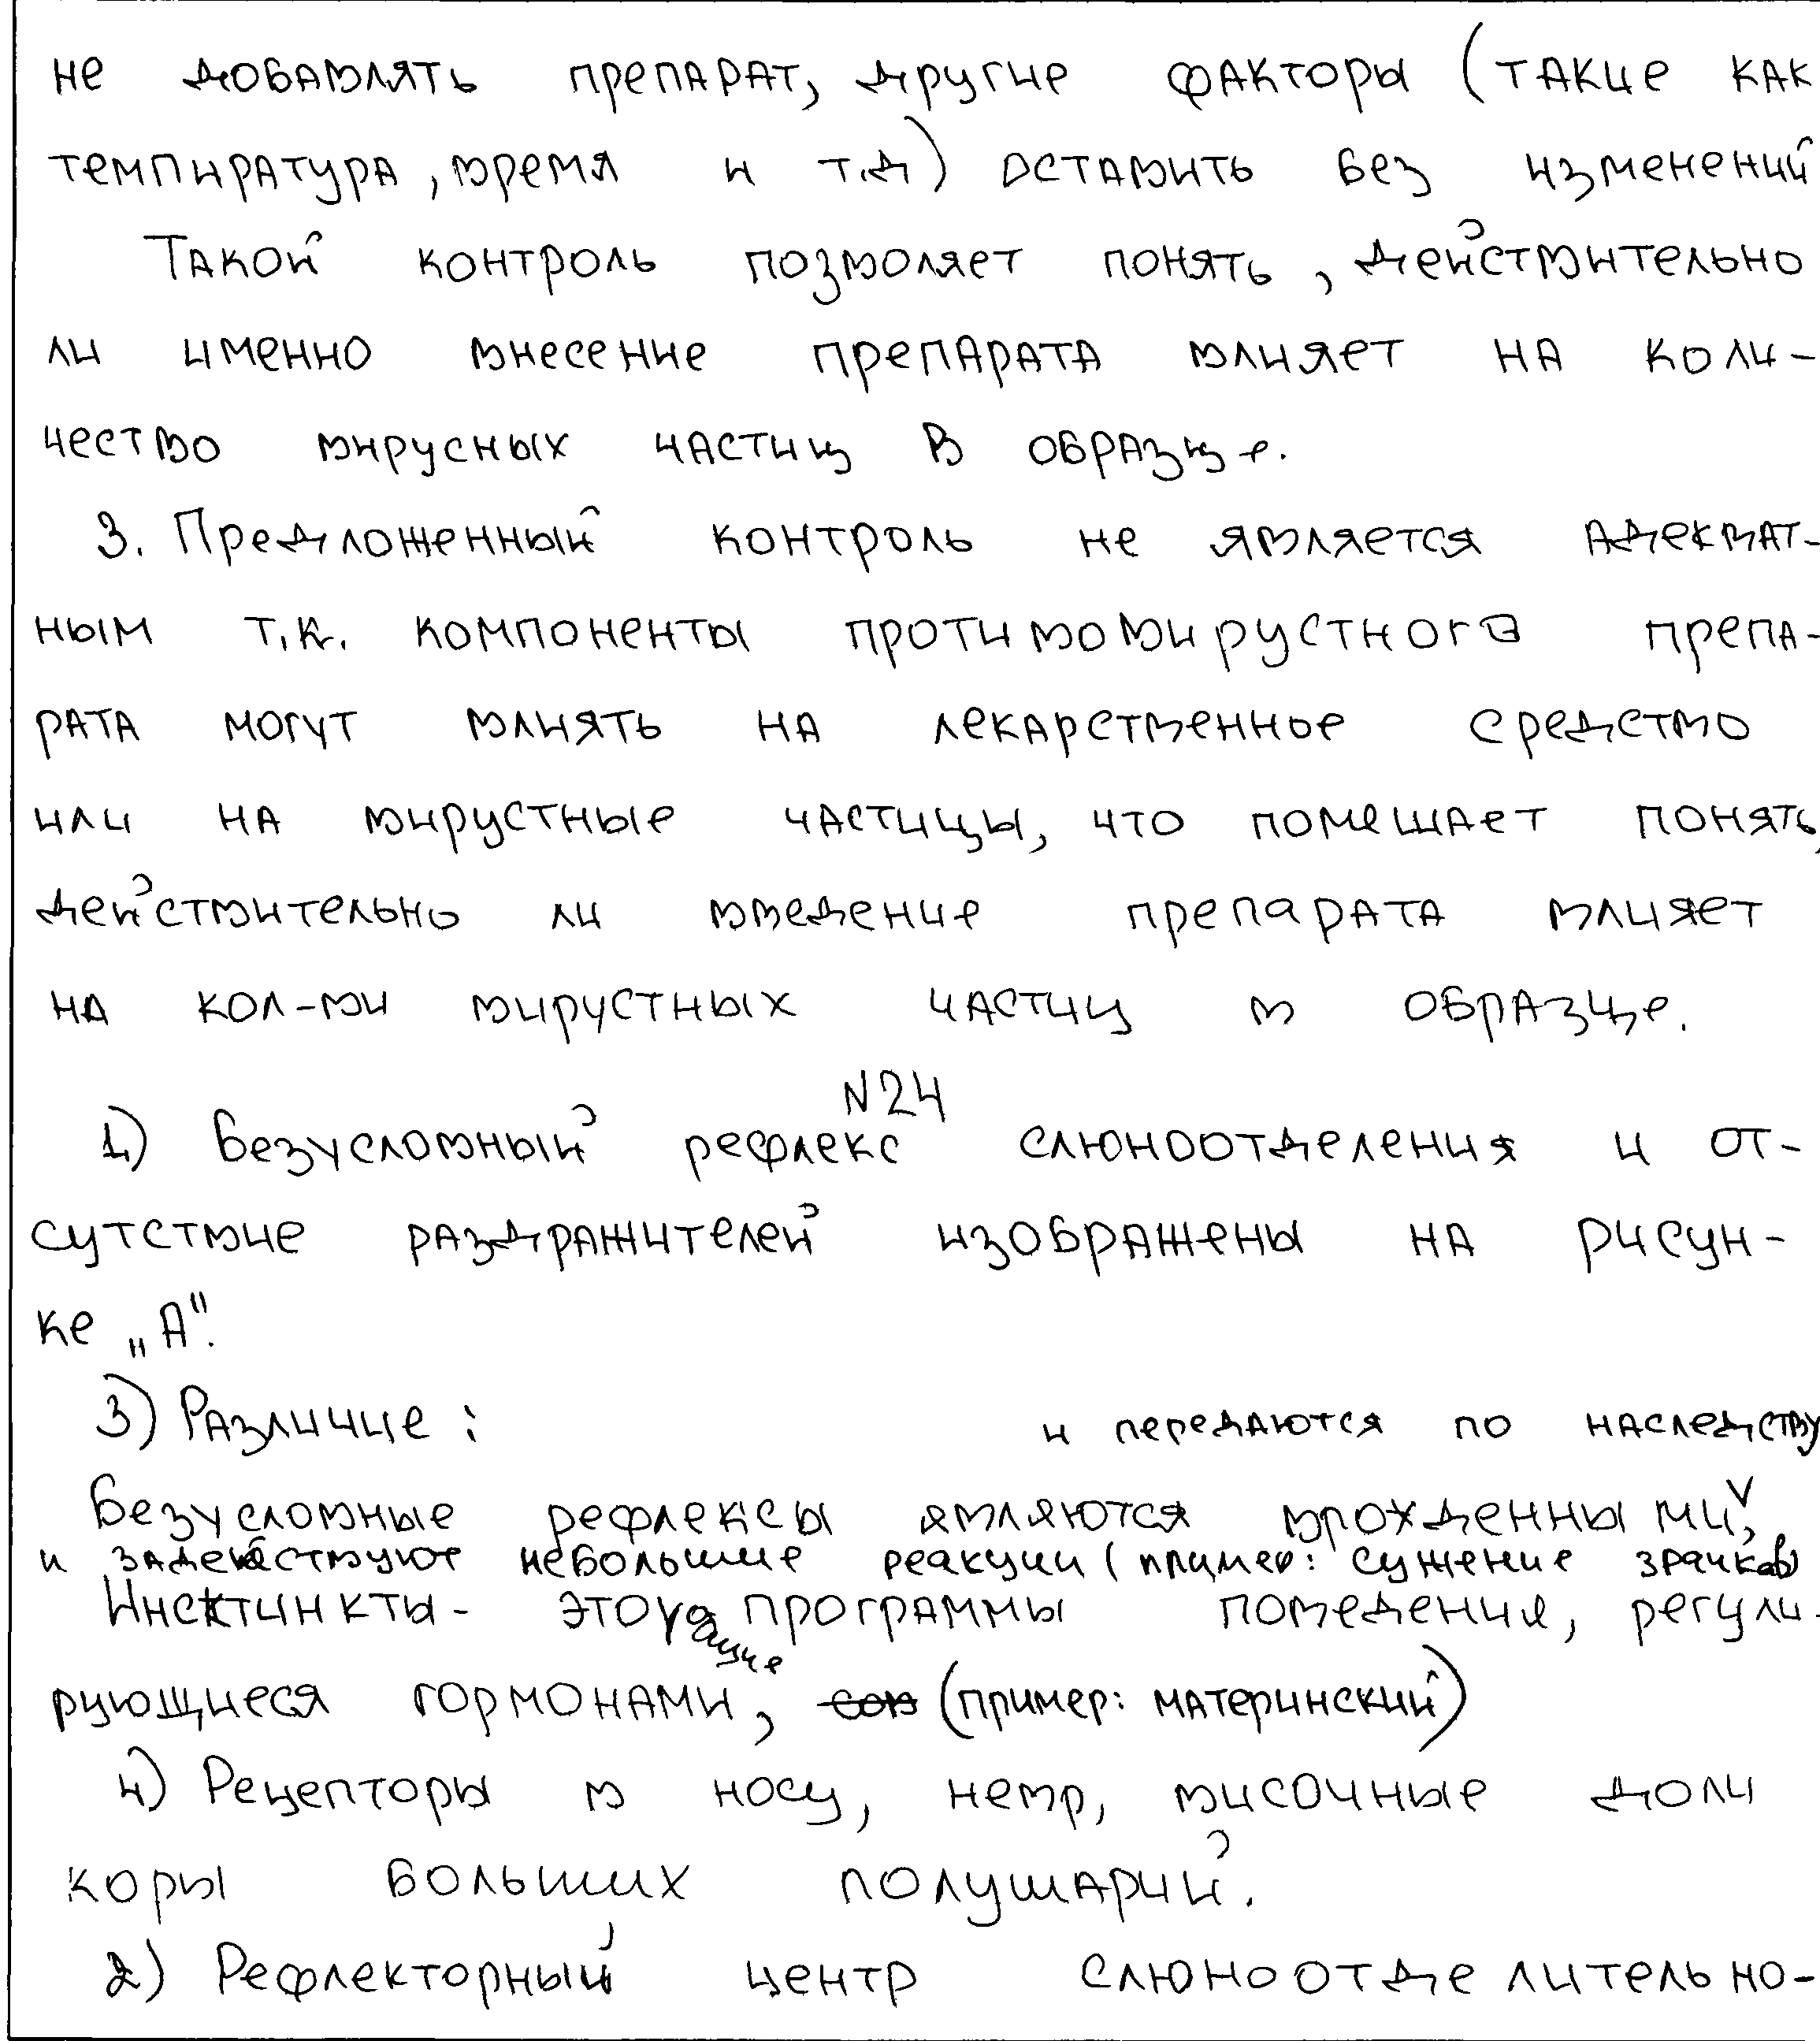 не добавлять препарат, другие факторы (такие как
темпиратура, время и т.д) оставить без изменений
Такой контроль позволяет понять, действительно
ли именно внесение препарата влияет на коли-
чество вирусных частиц в образце.
3. Предложенный контроль не является адекват-
ным т.к. компоненты противовирустного препа-
рата могут влиять на лекарственное средство
или на вирустные частицы, что помешает понять,
действительно ли введение препарата влияет
на кол-ви вирустных частиц в образце.
N24
1) Безусловный рефлекс слюноотделения и от-
сутствие раздражителей изображены на рисун-
ке „А".
3) Различие:
и передаются по наследству
Безусловные рефлексы являются врожденными,
и задействуют небольшие реакции (пример: сужение зрачков)
Инстинкты - это программы поведения, регули-
рующиеся гормонами, (пример: материнский)
4) Рецепторы в носу, невр, височные доли
коры больших полушарий.
2) Рефлекторный центр слюноотделительно-